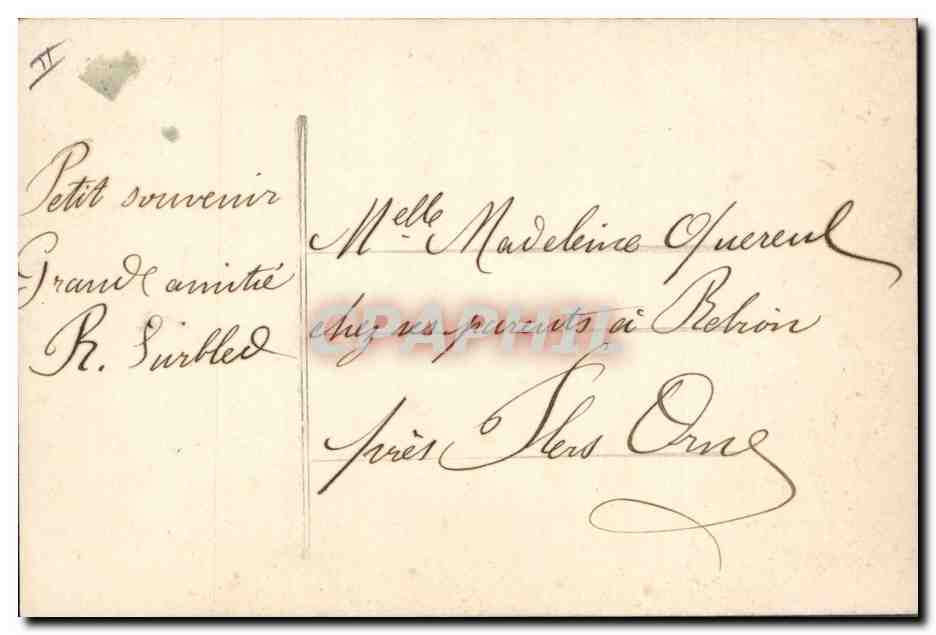 II
Petit souvenir
Grande amitié
R. Surbled
Melle Madeleine Quereul
chez ses parents à Rebion
près Flers Orne
CPAPHIL